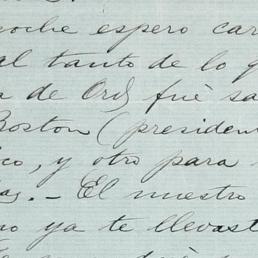 noche espero car
al tanto de lo q
de Ord, fué sa
Boston (presiden
co, y otro para
El nuestro
no ya te llevast